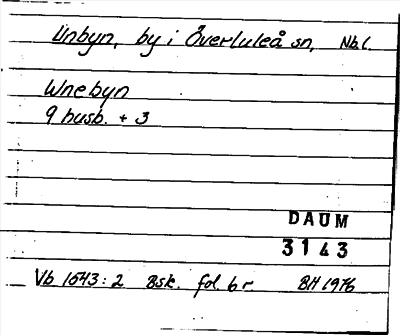 Unbyn, by i Överluleå sn, Nb l.
Wnebyn
9 husb. + 3
DAUM
3143
Vb 1543:2 Bsk. fol. 6 r BH 1976